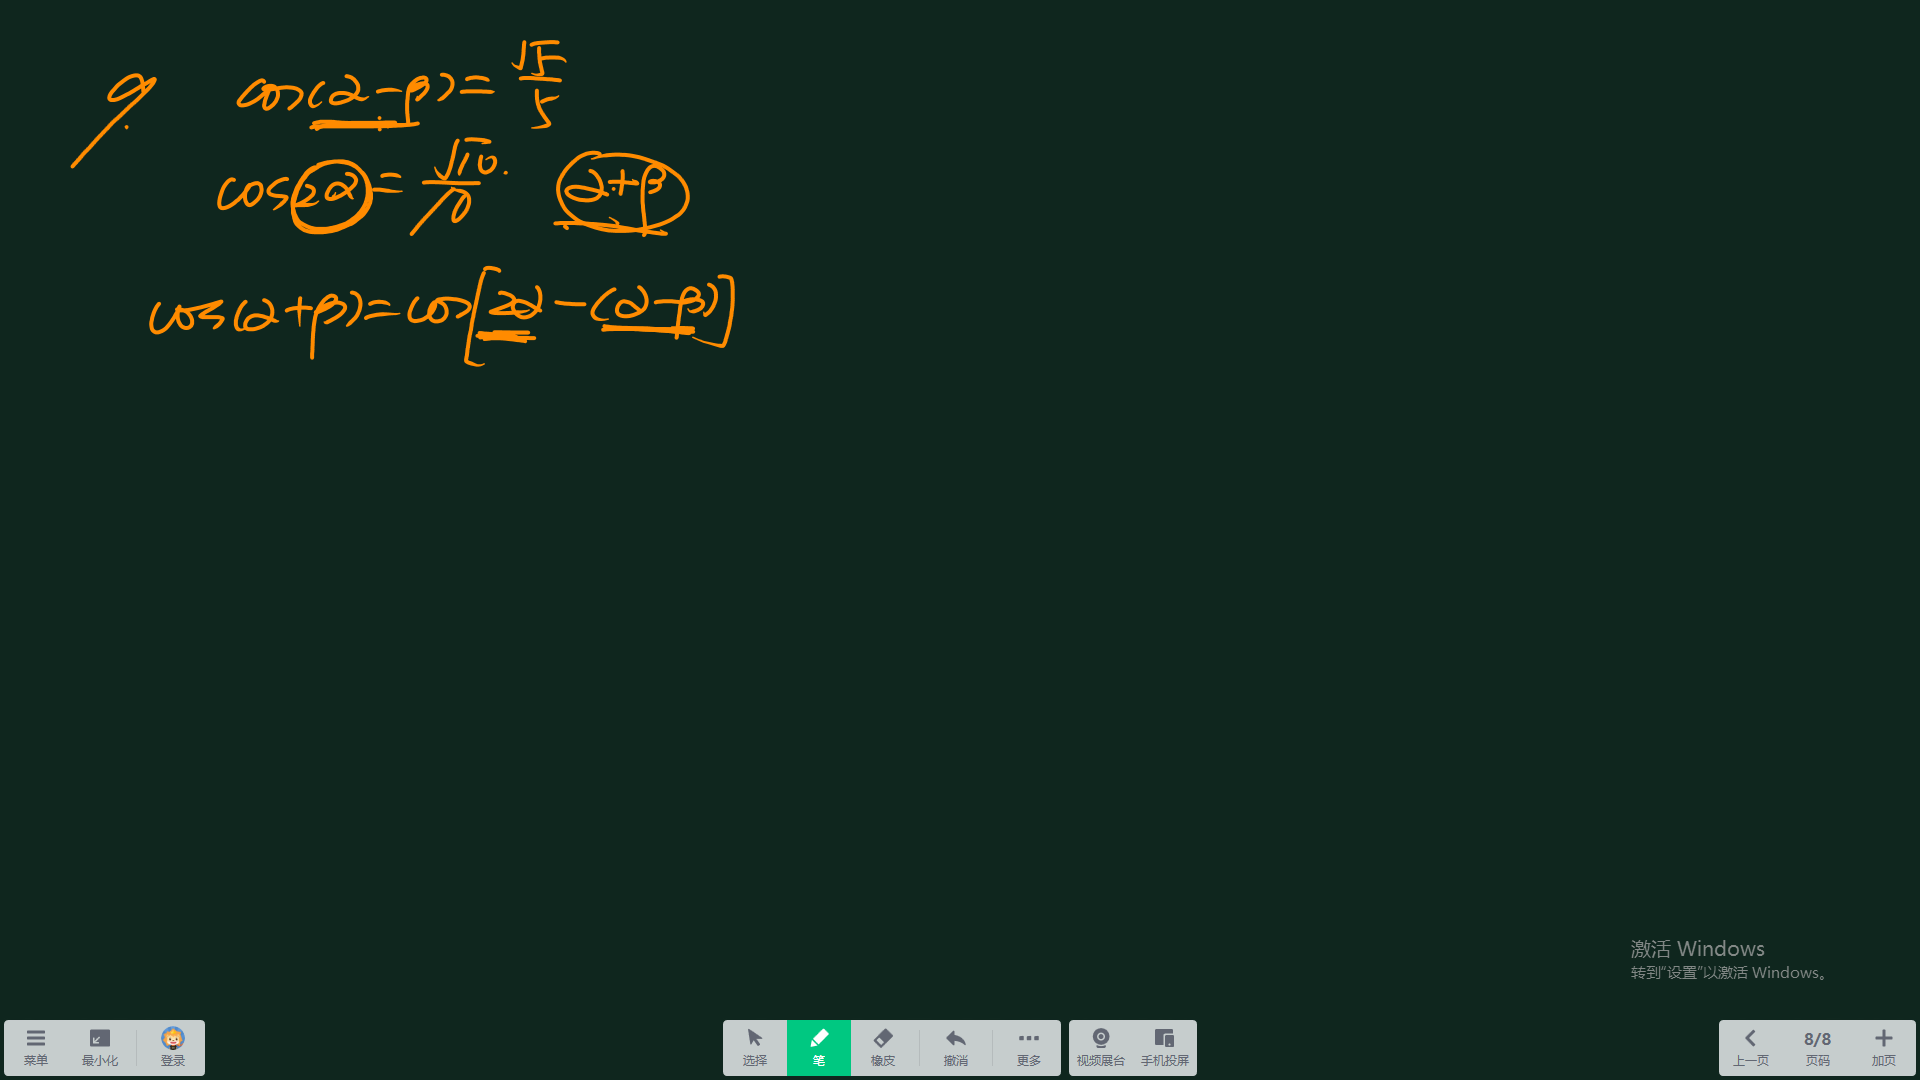 9.
cos(α-β)=√5/5
cos2α=√10/10. α+β
cos(α+β)=cos[2α-(α-β)]
激活 Windows
转到“设置”以激活 Windows。
菜单 最小化 登录 选择 笔 橡皮 撤消 更多 视频展台 手机投屏 上一页 8/8 页码 加页